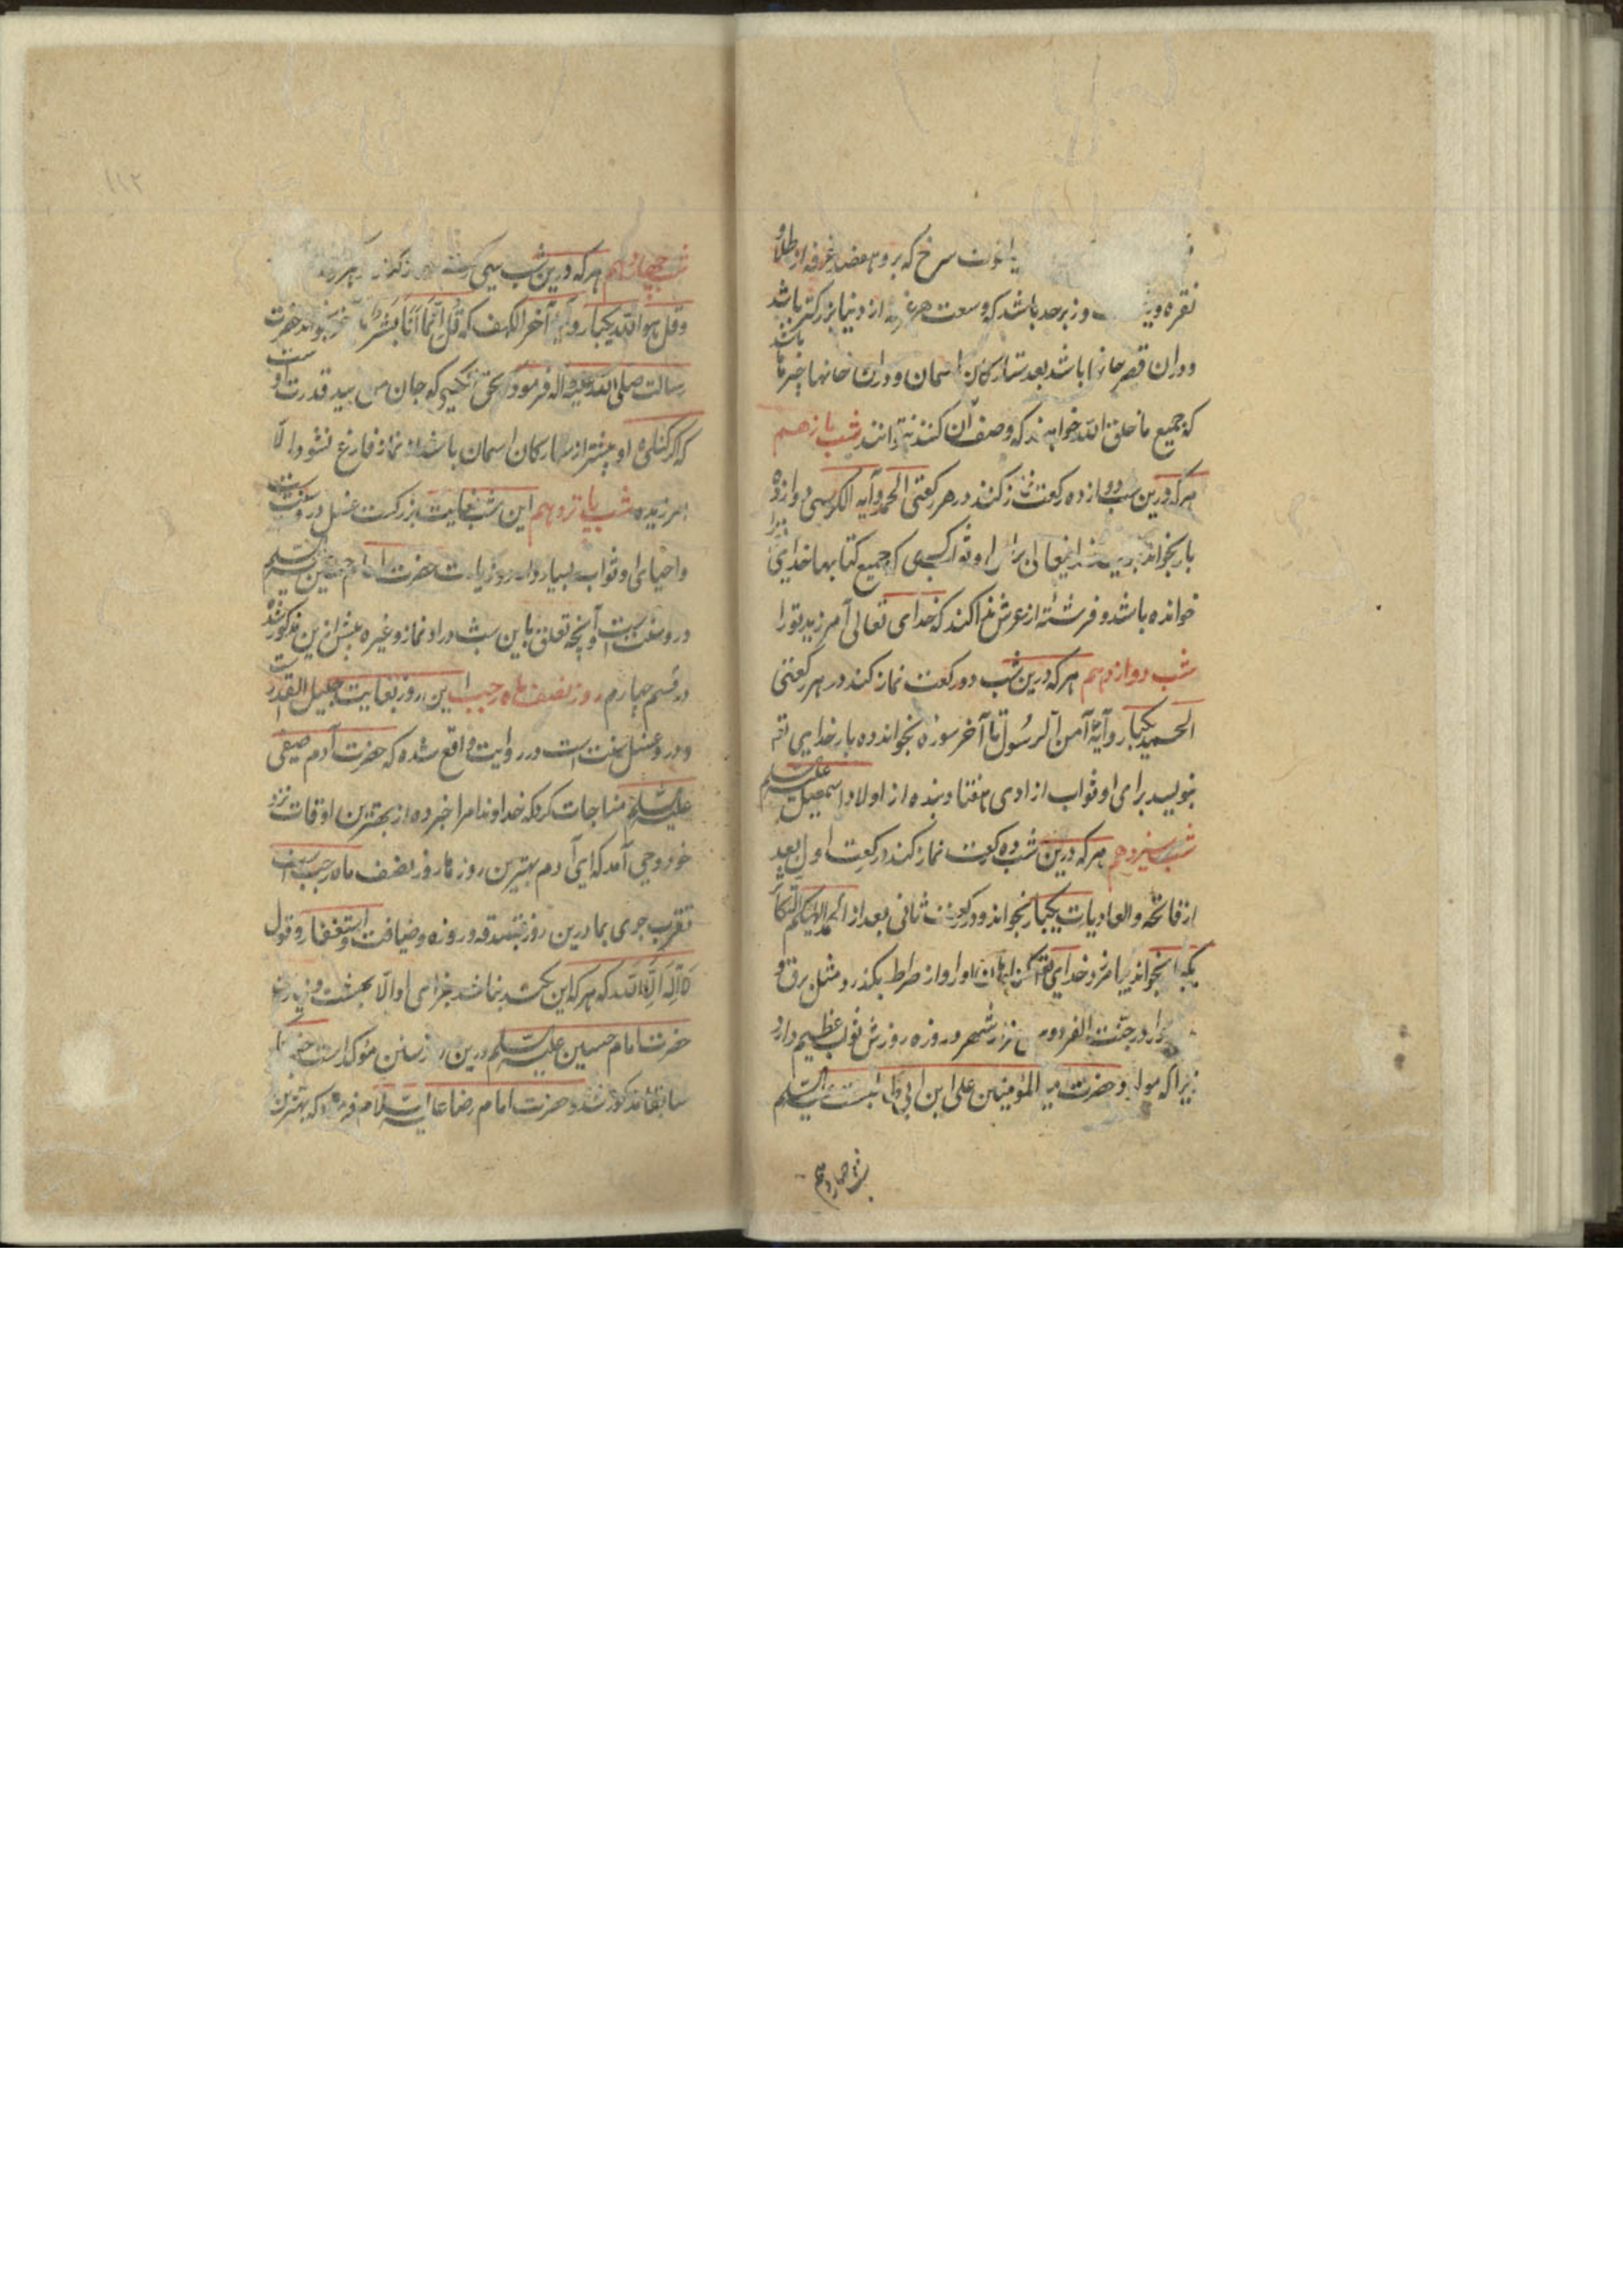 یاقوت سرخ که برو هفصد غرفه از طلا و
نقره و زبرجد باشد که وسعت هر غرفه از دنیا بزرکتر باشد
ودران قصر خانها باشد بعد ستارکان اسمان ودران خانها چیزها باشد
که جمیع ما خلق الله خواهند که وصف آن کنند نتوانند شب یازدهم
هرکه درین شب دوازده رکعت نماز کند در هر رکعتی الحمد وآیه الکرسی دوازده
بار بخواند او ثواب کسی که جمیع کتابها خدایرا
خوانده باشد و فرشتهٔ از عرش ندا کند که خدای تعالی آمرزید تورا
شب دوازدهم هرکه درین شب دورکعت نماز کند در هر رکعتی
الحمد یکبار وآیهٔ آمن الرسول تا آخر سوره بخواند ده بار خدایی تعه
بنویسد برای او ثواب ازادی هفتاد بنده از اولاد اسمعیل علیه السلم
شب سیزدهم هرکه درین شب ده رکعت نماز کند در رکعت اول بعد
از فاتحه والعادیات یکبار بخواند ودر رکعت ثانی بعد از الحمد الهیکم التکاثر
یکبار بخواند بیامرزد خدای تعه کناهان او را و از صراط بکذرد مثل برق و
در جنت الفردوس هزار شهر و روزه روزش ثواب عظیم دارد
زیراکه مولود حضرت امیر المؤمنین علی ابن ابی طالبست علیه السلم
شب چهاردهم
شب چهاردهم هرکه درین شب سی رکعت نماز کند در هر رکعت
وقل هو الله یکبار و آیهٔ آخر الکهف که قل انما انا بشر تا آخر بخواند حضرت
رسالت صلی الله علیه واله فرمود بحق آنکسی که جان من بید قدرت اوست
که اکر کناه او بیشتر از ستارکان اسمان باشد از نماز فارغ نشود الا
امرزیده شب پانزدهم این شب بغایت بزرکست غسل درو سنتست
واحیای او ثواب بسیار دارد و زیارت حضرت امام حسین علیه السلم
درو سنت است و آنچه تعلق باین شب دارد از نماز و غیره پیش ازین مذکور شد
در قسم چهارم روز نصف ماه رجب این روز بغایت جلیل القدرست
ودرو غسل سنت است و در روایت واقع شده که حضرت آدم صفی
علیه السلم مناجات کرد که خداوندا مرا خبر ده از بهترین اوقات نزد
خود وحی آمد که ای آدم بهترین روزها روز نصف ماه رجب است
تقرب جوی بما درین روز بتصدقه و روزه و ضیافت و استغفار و قول
لا اله الا الله که هرکه این بکند نباشد جزای او الا بهشت و زیارت
حضرت امام حسین علیه السلم درین روز سنن مؤکد است چنانکه
سابقا مذکور شد و حضرت امام رضا علیه السلام فرمود که بهترین
۱۱۲